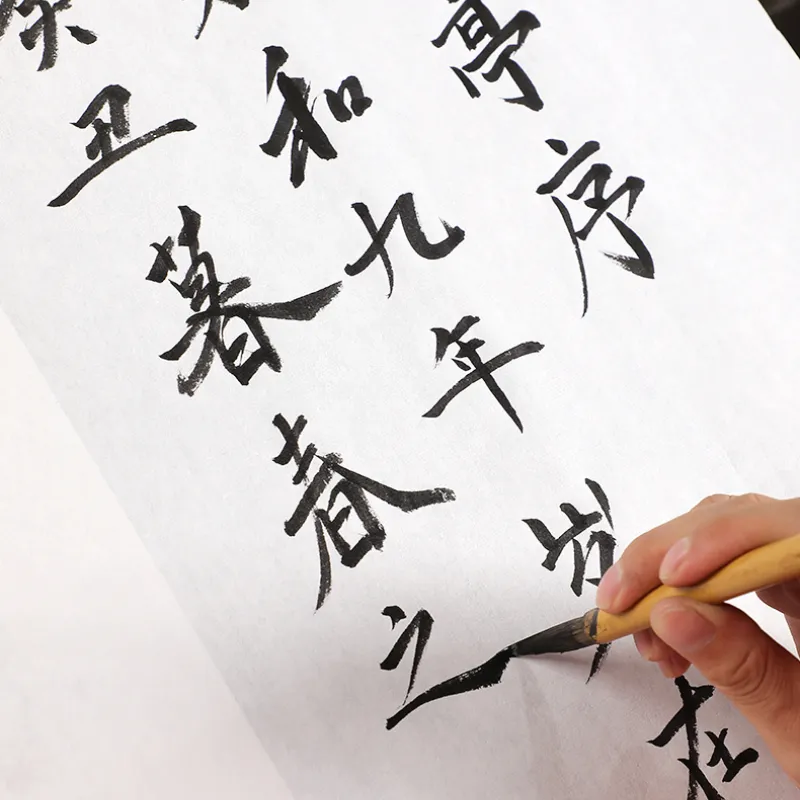 亭序
和九年歲在
癸丑暮春之